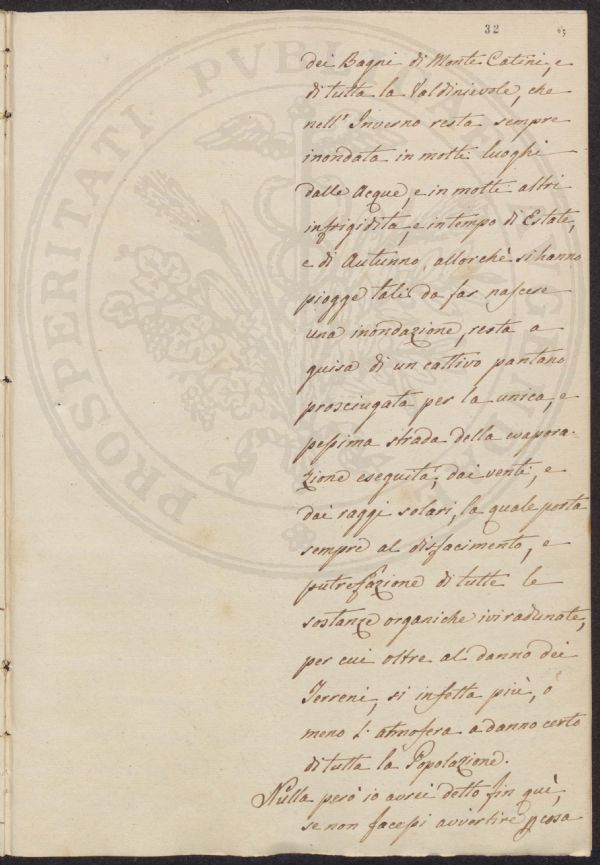 32
dei Bagni di Monte Catini, e
di tutta la Valdinievole, che
nell' Inverno resta sempre
inondata in molti luoghi
dalle Acque, e in molti altri
infrigidita, e in tempo di Estate,
e di Autunno, allorchè si hanno
piogge tali da far nascere
una inondazione, resta a
guisa di un cattivo pantano
prosciugata per la unica, e
pessima strada della evapora-
zione eseguita dai venti, e
dai raggi solari, la quale porta
sempre al disfacimento, e
putrefazione di tutte le
sostanze organiche ivi radunate,
per cui oltre al danno dei
Terreni, si infetta più, o
meno l' atmosfera a danno certo
di tutta la Popolazione.
Nulla però io avrei detto fin quì,
se non facessi avvertire cosa
PROSPERITATI PVBLICAE